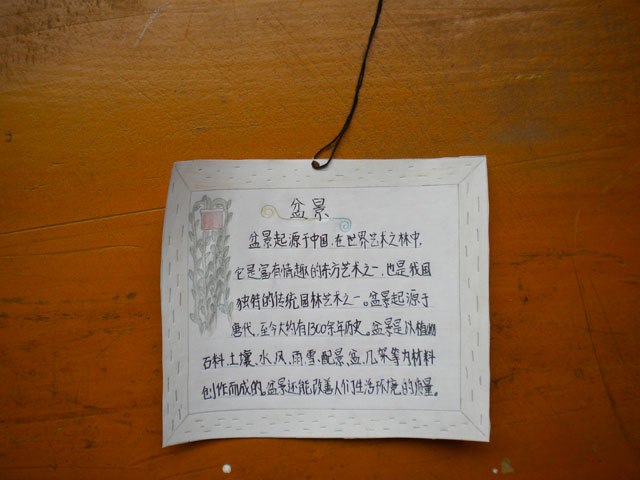 盆景
盆景起源于中国,在世界艺术之林中,
它是富有情趣的东方艺术之一,也是我国
独特的传统园林艺术之一。盆景起源于
唐代,至今大约有1300余年历史。盆景是以植物
石料、土壤、水、风、雨、雪、配景、盆、几、架等为材料
创作而成的。盆景还能改善人们生活环境的质量。